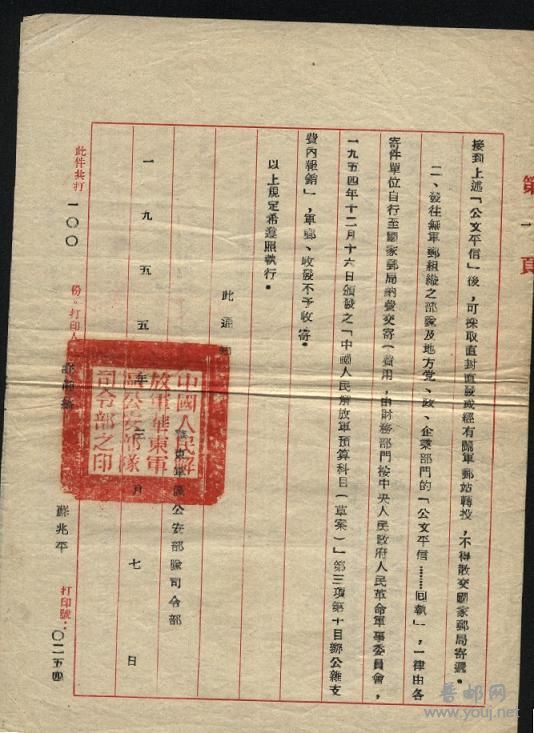 第一頁
接到上述「公文平信」後，可採取直封直發或經有關軍郵站轉投，不得散交國家郵局寄遞。
二、發往無軍郵組織之部隊及地方黨、政、企業部門的「公文平信……回執」，一律由各
寄件單位自行至國家郵局納費交寄（費用，由財務部門按中央人民政府人民革命軍事委員會，
一九五四年十二月十六日頒發之「中國人民解放軍預算科目（草案）」第三項第十目辦公雜支
費內報銷」，軍郵、收發不予收寄。
以上規定希遵照執行。
此通
東軍 公安部隊司令部
一九五五年 月七日
中國人民解
放軍華東軍
區公安部隊
司令部之印
此件共打一〇〇份。打印人 蘇兆平 打印號：〇二五四
普邮网
www.youj.net